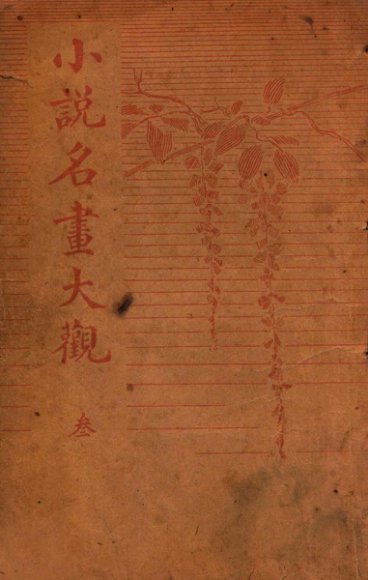 小説名畫大觀
叁